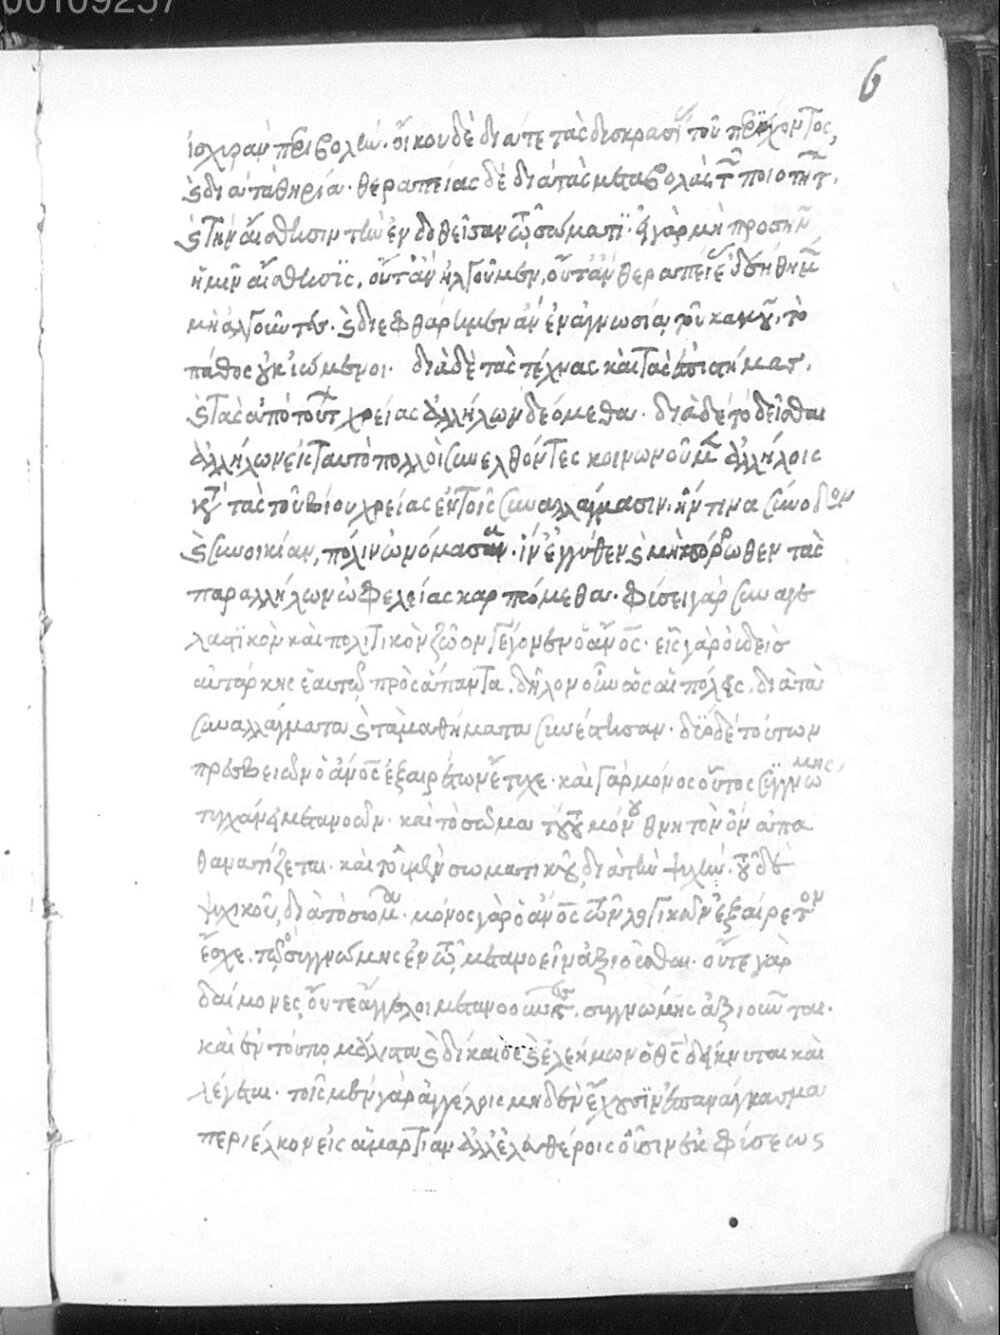 00109257
6
ἰσχυρὰν περιβολήν. οἴκου δὲ διά τε τὰς δυσκρασί τοῦ περιέχοντος,
ϗ διὰ τὰ θηρία. θεραπείας δὲ διὰ τὰς μεταβολὰς τ ποιοτήτ.
ϗ τὴν αἴσθησιν τὴν ἐνδοθεῖσαν τῶ σώματι. εἰ γὰρ μὴ προσῆν
ἡμῖν αἴσθησις, οὔτ ἂν ἠλγοῦμεν, οὔτ ἂν θεραπείας ἐδεήθημ
μὴ ἀλγοῦντες. ϗ διεφθάρημεν ἂν ἐν ἀγνωσία τοῦ κακοῦ, τὸ
πάθος οὐκ ἰώμενοι. διὰ δὲ τὰς τέχνας καὶ τὰς ἐπιστήμας,
ϗ τὰς ἀπὸ τούτ χρείας ἀλλήλων δεόμεθα. διὰ δὲ τὸ δεῖσθαι
ἀλλήλων εἰς ταυτὸ πολλοὶ συνελθόντες κοινωνοῦμ ἀλλήλοις
κατὰ τὰς τοῦ βίου χρείας ἐν τοῖς συναλλάγμασιν. ἥντινα σύνοδον
ϗ συνοικίαν, πόλιν ὠνόμασαν. ἵν ἐγγύθεν ϗ μὴ πόρρωθεν τὰς
παραλλήλων ὠφελείας καρπόμεθα. φύσει γὰρ συναγε
λαστικὸν καὶ πολιτικὸν ζῶον γέγονεν ὁ ἄνος. εἷς γὰρ οὐδεὶς
αὐτάρκης ἑαυτῶ πρὸς ἅπαντα. δῆλον οὖν ὡς αἱ πόλεις, διὰ τὰ
συναλλάγματα ϗ τὰ μαθήματα συνέστησαν. δύο δὲ τούτων
πρεσβείων ὁ ἄνος ἐξαιρέτων ἔτυχε. καὶ γὰρ μόνος οὗτος συγγνώμης,
τυγχάνει μετανοῶν. καὶ τὸ σῶμα τούτου μόνου θνητὸν ὂν ἀπα
θανατίζεται. καὶ τοῦ μὲν σωματικοῦ, διὰ τὴν ψυχήν. τοῦ δὲ
ψυχικοῦ, διὰ τὸ σῶμα. μόνος γὰρ ὁ ἄνος τῶν λογικῶν ἐξαίρετον
ἔσχε. τὸ συγγνώμης ἐν τῶ μετανοεῖν ἀξιοῦσθαι. οὔτε γὰρ
δαίμονες, οὔτε ἄγγελοι μετανοοῦντες, συγγνώμης ἀξιοῦνται.
καὶ ἐν τούτω μάλιστα ϗ δίκαιος ϗ ἐλεήμων ὁ θς δείκνυται καὶ
λέγεται. τοῖς μὲν γὰρ ἀγγέλοις μηδὲν ἔχουσιν ἐπανάγκασμα
περιέλκον εἰς ἁμαρτίαν ἀλλ ἐλευθέροις οὖσιν ἐκ φύσεως